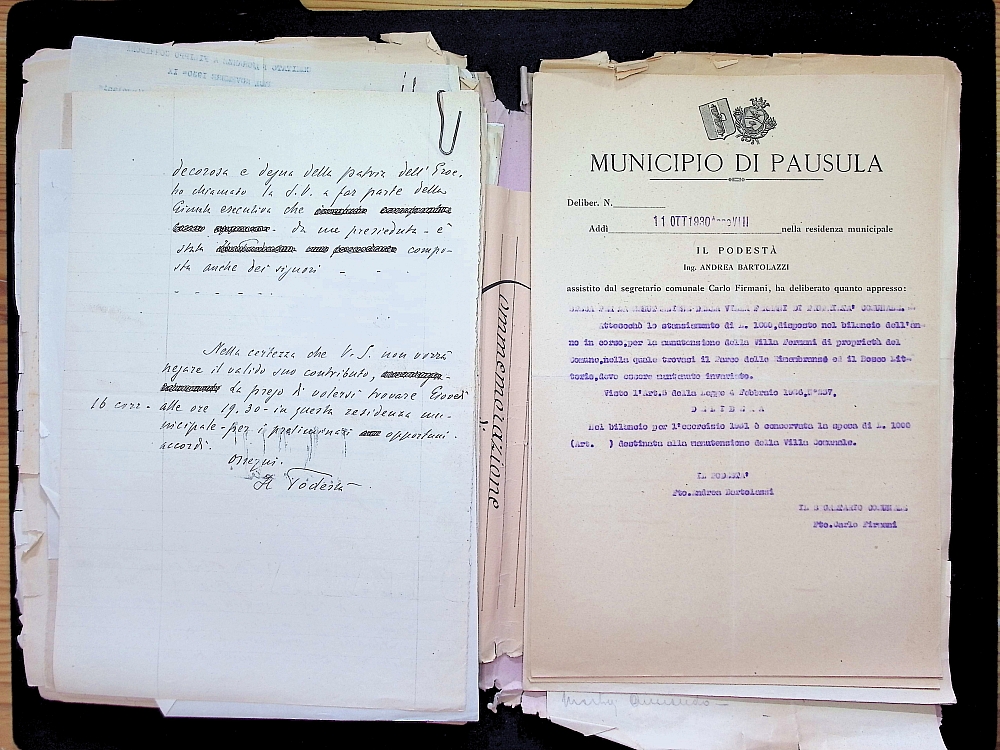 decorosa e degna della patria dell'Eroe,
ho chiamato la S.V. a far parte della
Giunta esecutiva che
da me presieduta - è
stata compo-
sta anche dei signori - -
- - - - - -
Nella certezza che V.S. non vorrà
negare il valido suo contributo,
La prego di volersi trovare Giovedì
16 corr. - alle ore 19.30 - in questa residenza mu-
nicipale - per i preliminari opportuni
accordi.
Ossequi.
Il Podestà
Commemorazione
di
MUNICIPIO DI PAUSULA
Deliber. N.
Addì 11 OTT 1930 Anno VIII nella residenza municipale
IL PODESTÀ
Ing. ANDREA BARTOLAZZI
assistito dal segretario comunale Carlo Firmani, ha deliberato quanto appresso:
DELLA VILLA FERMANI DI PROPRIETA' COMUNALE.-
Attesochè lo stanziamento di L. 1000, disposto nel bilancio dell'an-
no in corso, per la manutensione della Villa Fermani di proprietà del
Comune, nella quale trovasi il Parco delle Rimembranze ed il Bosco Lit-
torio, deve essere mantenuto invariato.
Visto l'Art.5 della Legge 4 Febbraio 1926, N°237,
DELIBERA
Nel bilancio per l'esercizio 1931 è conservata la spesa di L. 1000
(Art. ) destinata alla manutensione della Villa Comunale.
IL PODESTA'
Fto. Andrea Bartolazzi
IL SEGRETARIO COMUNALE
Fto. Carlo Firmani